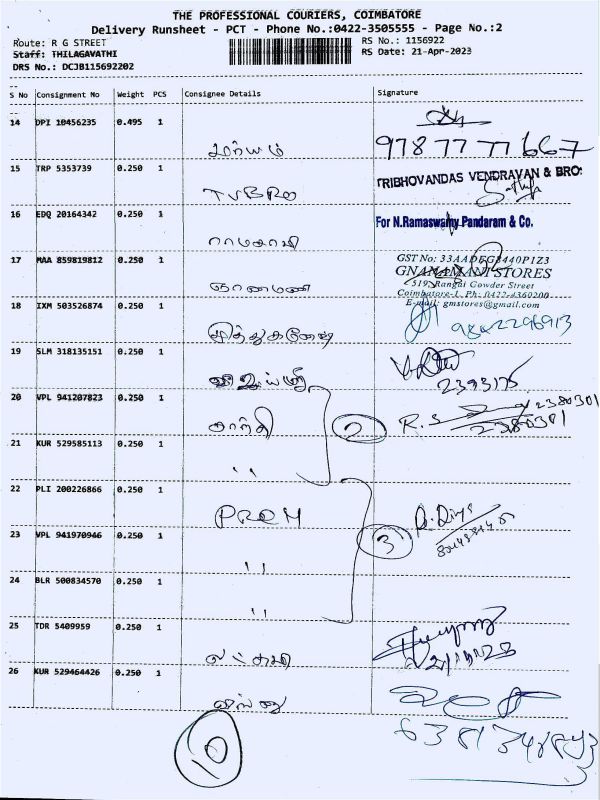 THE PROFESSIONAL COURIERS, COIMBATORE
Delivery Runsheet - PCT - Phone No.:0422-3505555 - Page No.:2
Route: R G STREET
RS No.: 1156922
Staff: THILAGAVATHI
RS Date: 21-Apr-2023
DRS No.: DCJB115692202
S No Consignment No Weight PCS Consignee Details Signature
14 DPI 10456235 0.495 1
9787777667
15 TRP 5353739 0.250 1
TRIBHOVANDAS VENDRAVAN & BRO:
TVBRO
16 EDQ 20164342 0.250 1
For N.Ramaswamy Pandaram & Co.
17 MAA 859819812 0.250 1
GNANAMANI STORES
519, Rangai Gowder Street
Coimbatore-1. Ph: 0422-4360200
E-mail: gmstores@gmail.com
ஞானமணி
18 IXM 503526874 0.250 1
9842296913
19 SLM 318135151 0.250 1
2393175
20 VPL 941207823 0.250 1
2380301
சாந்தி 2 R. S 2380301
21 KUR 529585113 0.250 1
"
22 PLI 200226866 0.250 1
PREM
23 VPL 941970946 0.250 1
3
"
24 BLR 500834570 0.250 1
"
25 TDR 5409959 0.250 1
லட்சுமி
26 KUR 529464426 0.250 1
10